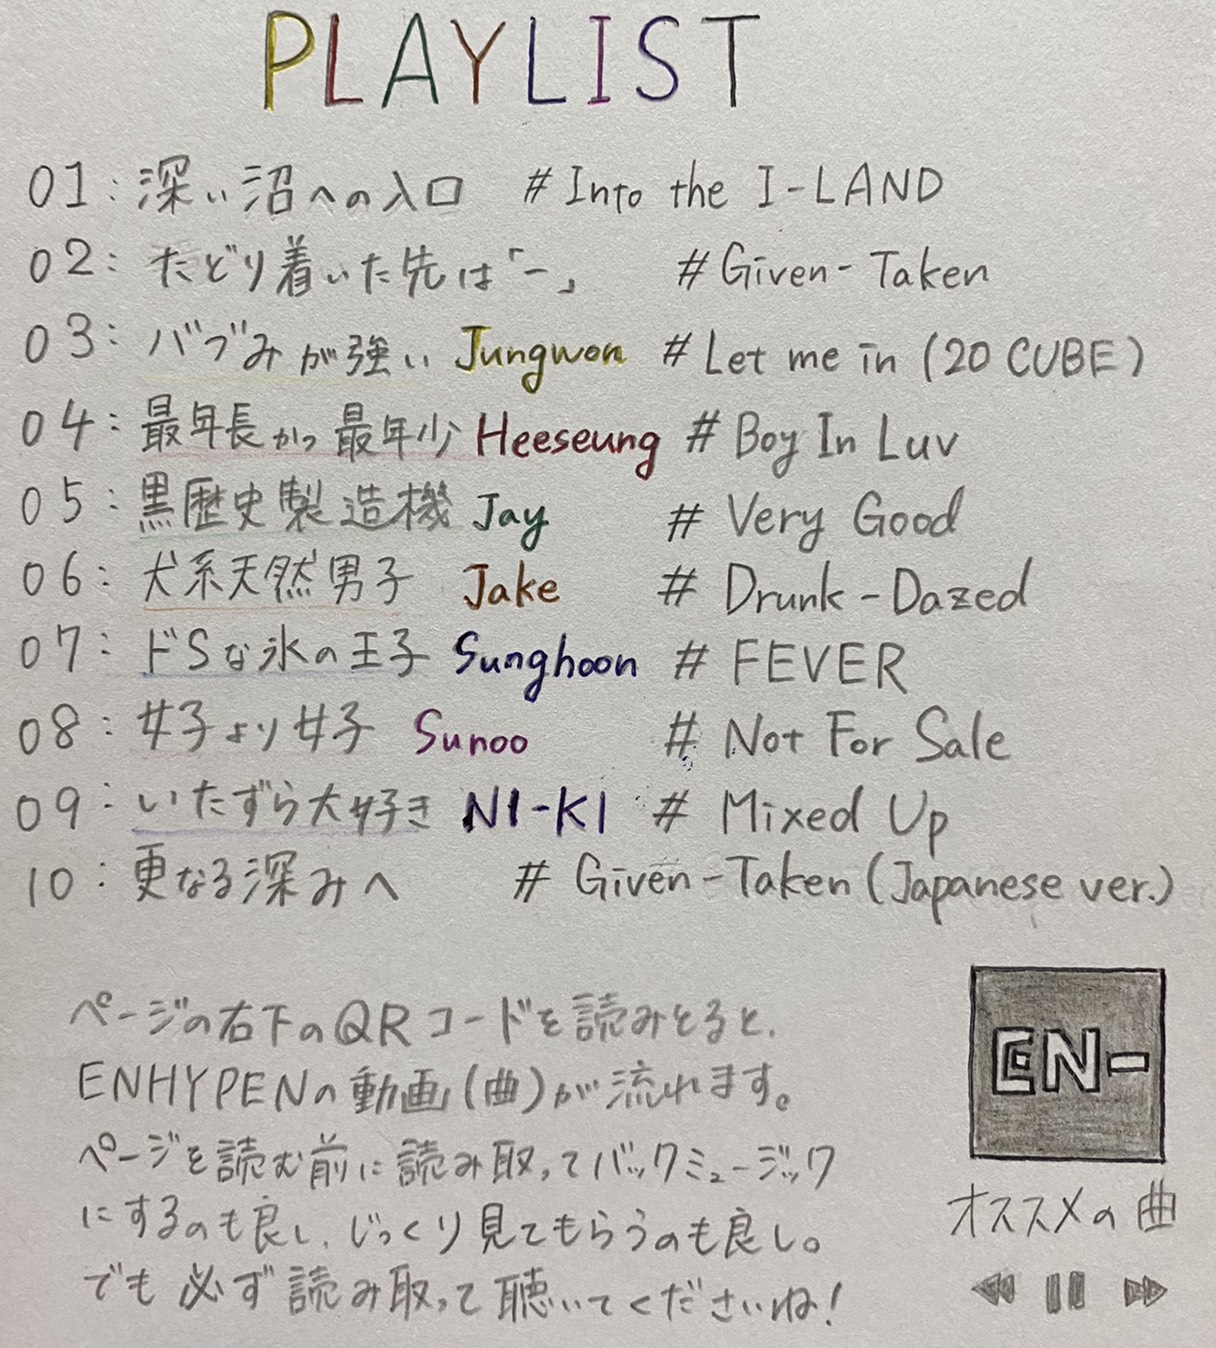 PLAYLIST
01:深い沼への入口 #Into the I-LAND
02:たどり着いた先は「-」 #Given-Taken
03:バブみが強い Jungwon #Let me in (20 CUBE)
04:最年長かつ最年少 Heeseung #Boy In Luv
05:黒歴史製造機 Jay # Very Good
06:犬系天然男子 Jake # Drunk-Dazed
07:ドSな氷の王子 Sunghoon # FEVER
08:女子より女子 Sunoo # Not For Sale
09:いたずら大好き NI-KI # Mixed Up
10:更なる深みへ # Given-Taken (Japanese ver.)
ページの右下のQRコードを読みとると、
ENHYPENの動画(曲)が流れます。
ページを読む前に読み取ってバックミュージック
にするのも良し、じっくり見てもらうのも良し。
でも必ず読み取って聴いてくださいね!
EN-
オススメの曲